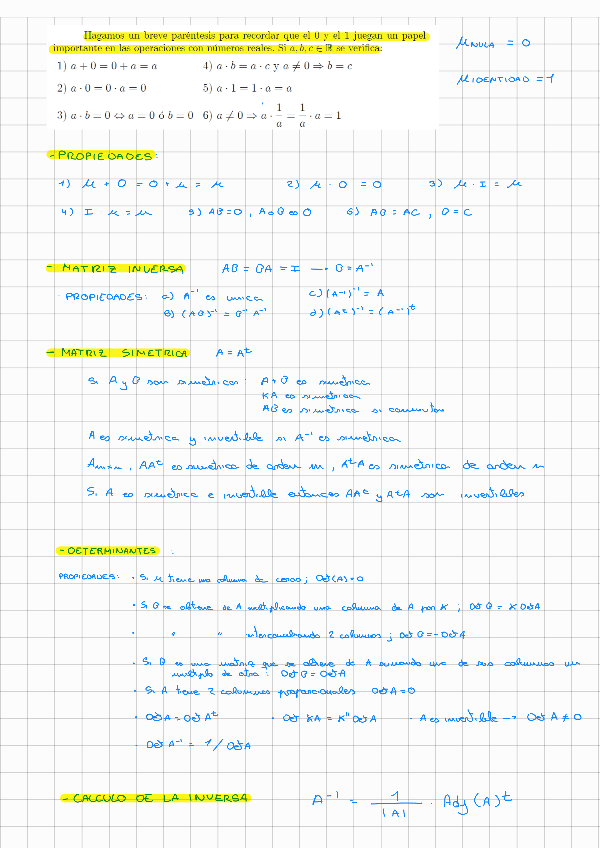 Hagamos un breve paréntesis para recordar que el 0 y el 1 juegan un papel
importante en las operaciones con números reales. Si a, b, c ∈ ℝ se verifica:
1) a + 0 = 0 + a = a    4) a · b = a · c y a ≠ 0 ⇒ b = c
2) a · 0 = 0 · a = 0    5) a · 1 = 1 · a = a
3) a · b = 0 ⇔ a = 0 ó b = 0    6) a ≠ 0 ⇒ a · 1/a = 1/a · a = 1
M NULA = 0
M IDENTIDAD = 1
- PROPIEDADES:
1) M + 0 = 0 + M = M    2) M · 0 = 0    3) M · I = M
4) I · M = M    5) AB = 0, A o B ⇔ 0    6) AB = AC, B = C
- MATRIZ INVERSA    AB = BA = I → B = A⁻¹
PROPIEDADES: a) A⁻¹ es unica    c) (A⁻¹)⁻¹ = A
b) (AB)⁻¹ = B⁻¹ A⁻¹    d) (Aᵗ)⁻¹ = (A⁻¹)ᵗ
- MATRIZ SIMETRICA    A = Aᵗ
Si A y B son simetricas: A + B es simetrica
KA es simetrica
AB es simetrica si conmutan
A es simetrica y invertible si A⁻¹ es simetrica
Amxn, AAᵗ es simetrica de orden m, AᵗA es simetrica de orden n
Si A es simetrica e invertible entonces AAᵗ y AᵗA son invertibles
- DETERMINANTES
PROPIEDADES: · Si M tiene una columna de ceros; Det(A) = 0
· Si B se obtiene de A multiplicando una columna de A por K; Det B = K Det A
· " " intercambiando 2 columnas; Det B = - Det A
· Si B es una matriz que se obtiene de A sumando una de sus columnas un
multiplo de otra: Det B = Det A
· Si A tiene 2 columnas proporcionales Det A = 0
· Det A = Det Aᵗ    · Det KA = Kⁿ Det A    · A es invertible → Det A ≠ 0
· Det A⁻¹ = 1 / Det A
- CALCULO DE LA INVERSA    A⁻¹ = 1/|A| · Adj (A)ᵗ